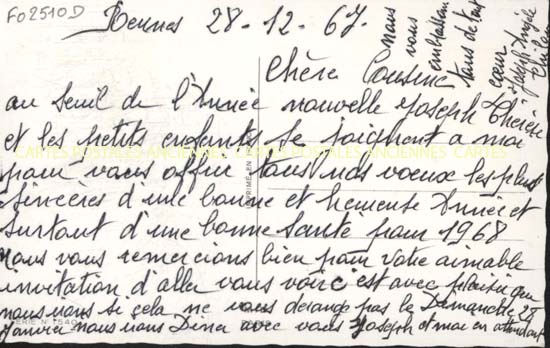 FO2510D
Rennes 28-12-67
Chère Cousine
au seuil de l'Année nouvelle Joseph Thérèse
et les petits enfants se joignent a moi
CARTES POSTALES ANCIENNES CARTES POSTALES ANCIENNES CARTES
pour vous offrir tous nos voeux les plus
sincères d'une bonne et heureuse Année et
surtout d'une bonne Santé pour 1968
nous vous remercions bien pour votre aimable
invitation d'aller vous voir c'est avec plaisir que
nous irons si cela ne vous derange pas le Dimanche 28
Janvier nous irons Diner avec vous Joseph et moi en attendant
nous
vous
embrassons
tous de tout
coeur
Joseph Angèle
IMPRIMÉ EN
SERIE N° 1540